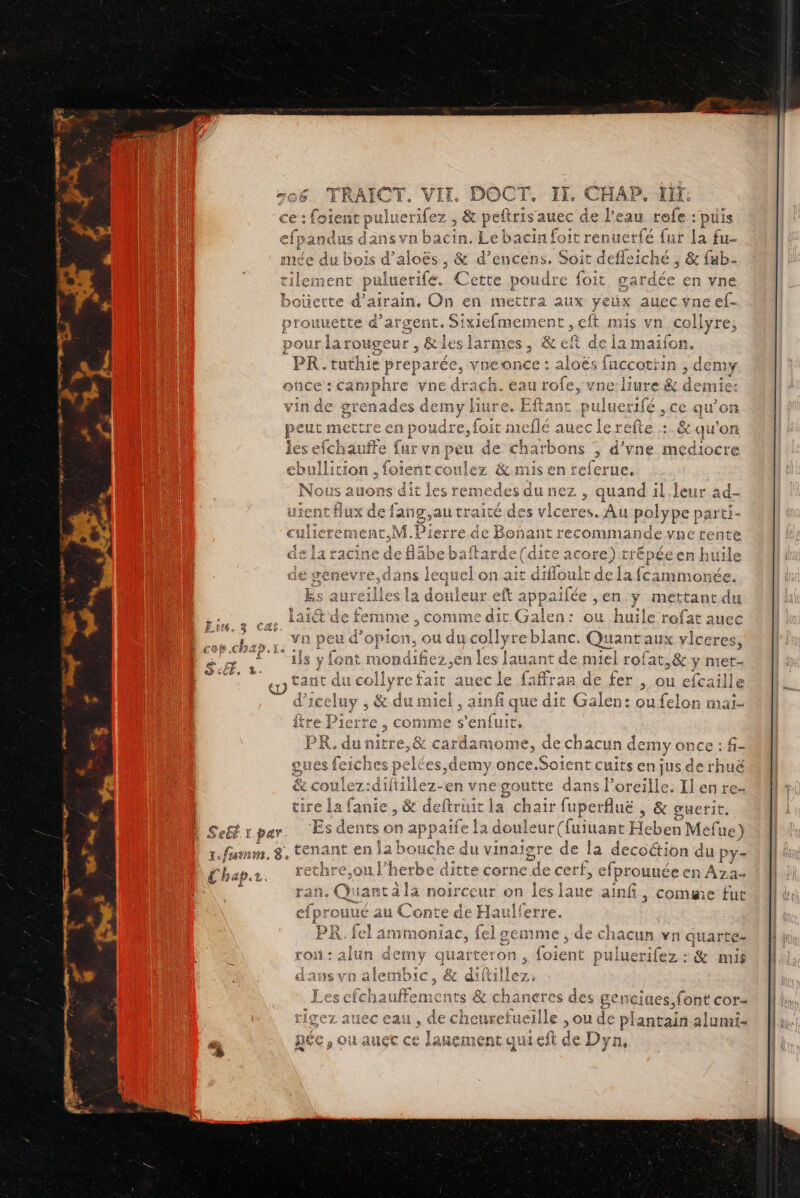 706 TRAICT. VII. DOCT. II. CHAP. III.
ce : ſoient puluerifez , & peſtris auec de l'eau roſe : puis
eſpandus dans vn bacin. Le bacin ſoit renuerſé ſur la fu-
mée du bois d'aloës , & d'encens. Soit deſſeiché , & ſub-
tilement puluerifé. Cette poudre ſoit gardée en vne
boüette d'airain. On en mettra aux yeux auec vne eſ-
prouuette d'argent. Sixieſmement , eſt mis vn collyre,
pour la rougeur , & les larmes , & eſt de la maiſon.
PR. tuthie preparée, vne once : aloës ſuccotrin , demy
once : camphre vne drach. eau roſe, vne liure & demie:
vin de grenades demy liure. Eſtant puluerifé , ce qu'on
peut mettre en poudre, ſoit meſlé auec le reſte : & qu'on
les eſchauffe ſur vn peu de charbons , d'vne mediocre
ebullition , ſoient coulez & mis en reſerue.
Nous auons dit les remedes du nez , quand il leur ad-
uient flux de ſang, au traité des vlceres. Au polype parti-
culierement, M. Pierre de Bonant recommande vne tente
de la racine de flâbe baſtarde (dite acore) trêpée en huile
de genevre, dans lequel on ait diſſoult de la ſcammonée.
Es aureilles la douleur eſt appaiſée , en y mettant du
Liu. 3 cat. laict de femme , comme dit Galen : ou huile roſat auec
cop. chap. 1. vn peu d'opion, ou du collyre blanc. Quant aux vlceres,
S. 1. ils y ſont mondifiez, en les lauant de miel roſat, & y met-
tant du collyre fait auec le ſaffran de fer , ou eſcaille
d'iceluy , & du miel , ainſi que dit Galen : ou ſelon mai-
ſtre Pierre , comme s'enſuit.
PR. du nitre, & cardamome, de chacun demy once : fi-
gues ſeiches pelées, demy once. Soient cuits en jus de rhuë
& coulez : diſtillez-en vne goutte dans l'oreille. Il en re-
tire la ſanie , & deſtruit la chair ſuperfluë , & guerit.
Sect 1 par Es dents on appaiſe la douleur (ſuiuant Heben Meſue)
1. ſumm. 8. tenant en la bouche du vinaigre de la decoction du py-
Chap. 2. rethre, ou l'herbe ditte corne de cerf, eſprouuée en Aza-
ran. Quant à la noirceur on les laue ainſi , comme fut
eſprouué au Conte de Haulferre.
PR. ſel ammoniac, ſel gemme , de chacun vn quarte-
ron : alun demy quarteron , ſoient puluerifez : & mis
dans vn alembic , & diſtillez.
Les eſchauffements & chancres des genciues, ſont cor-
rigez auec eau , de cheurefueille , ou de plantain alumi-
née , ou auec ce lauement qui eſt de Dyn,